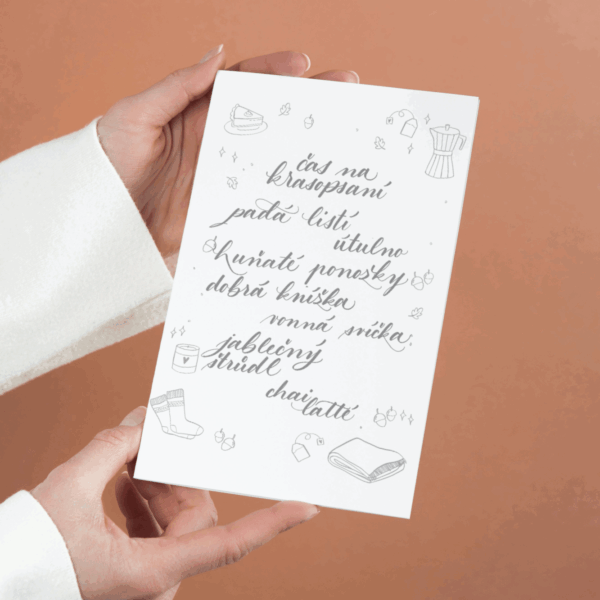 čas na
krasopsaní
padá listí
útulno
huňaté ponožky
dobrá knížka
vonná svíčka
jablečný
štrúdl
chai
latté